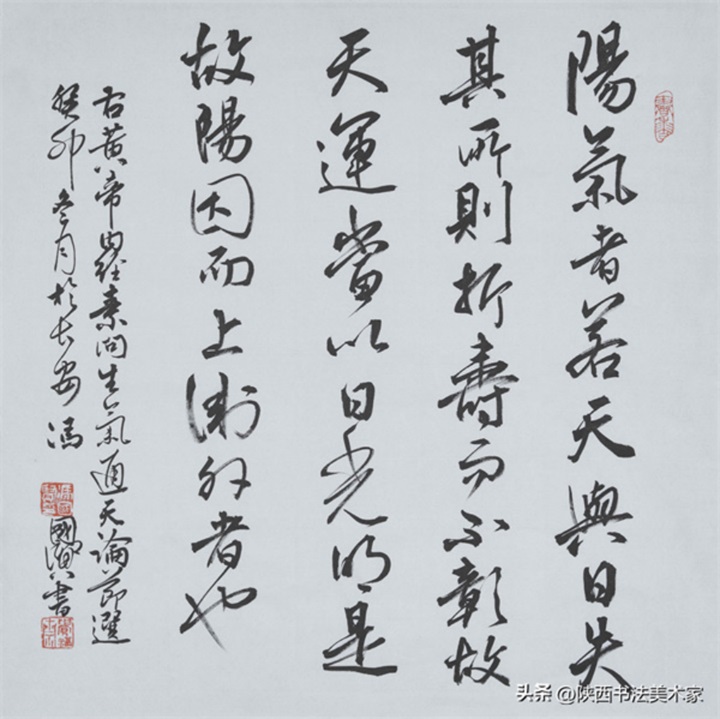 陽氣者若天與日失
其所則折壽而不彰故
天運當以日光明是
故陽因而上衛外者也
右黃帝内經素問生氣通天論節選
癸卯冬月於長安馮國書
头条 @陕西书法美术家